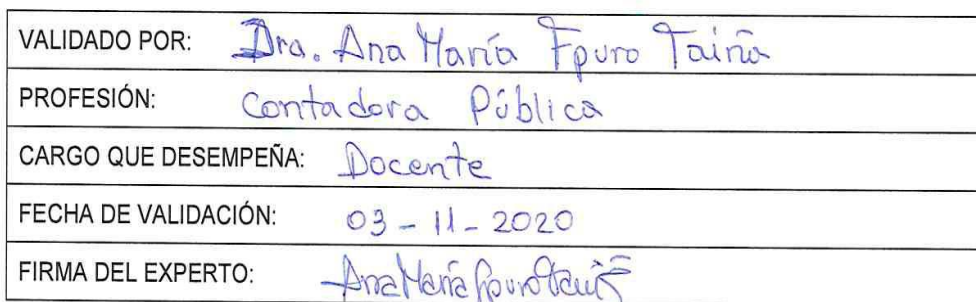 VALIDADO POR: Dra. Ana María Fpuro Taiña
PROFESIÓN: Contadora Pública
CARGO QUE DESEMPEÑA: Docente
FECHA DE VALIDACIÓN: 03 - 11 - 2020
FIRMA DEL EXPERTO: Ana María